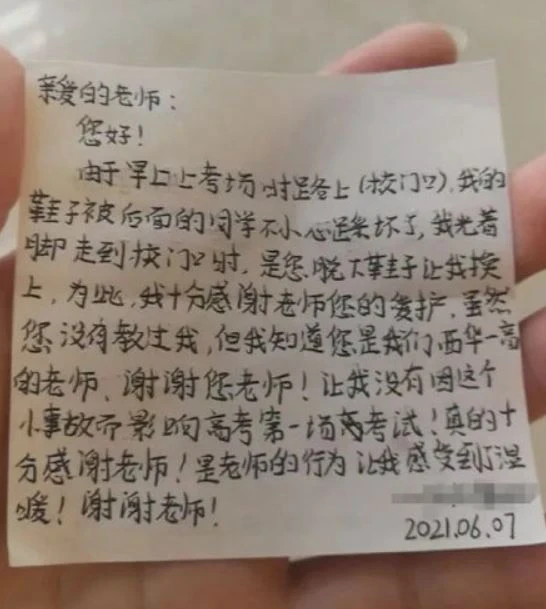 亲爱的老师：
您好！
由于早上上考场时路上(校门口),我的
鞋子被后面的同学不小心踩坏了,我光着
脚走到校门口时,是您脱下鞋子让我换
上,为此,我十分感谢老师您的爱护.虽然
您没有教过我,但我知道您是我们西华一高
的老师、谢谢您老师！让我没有因这个
小事故而影响高考第一场考试！真的十
分感谢老师！是老师的行为让我感受到了温
暖！谢谢老师！
2021.06.07